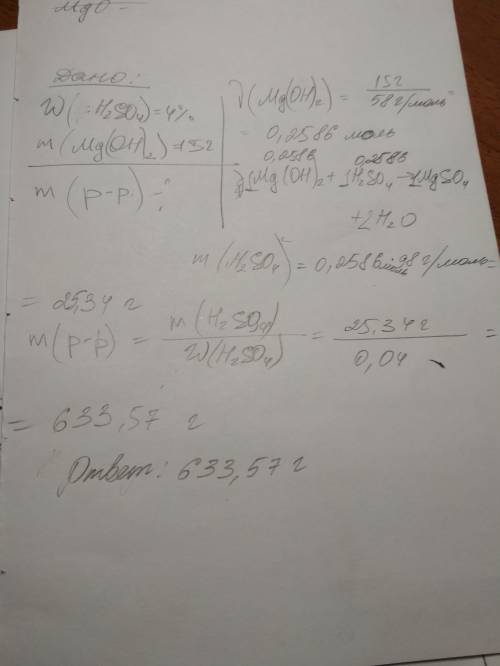 MgO -
Дано:
W(H₂SO₄) = 4%
m(Mg(OH)₂) = 15г
m(р-р) - ?
ν(Mg(OH)₂) = 15г / 58г/моль =
= 0,2586 моль
0,2586 0,2586
1Mg(OH)₂ + 1H₂SO₄ → 1MgSO₄
+2H₂O
m(H₂SO₄) = 0,2586 моль · 98 г/моль =
= 25,34 г
m(р-р) = m(H₂SO₄) / W(H₂SO₄) = 25,34г / 0,04 =
= 633,57 г
Ответ: 633,57 г